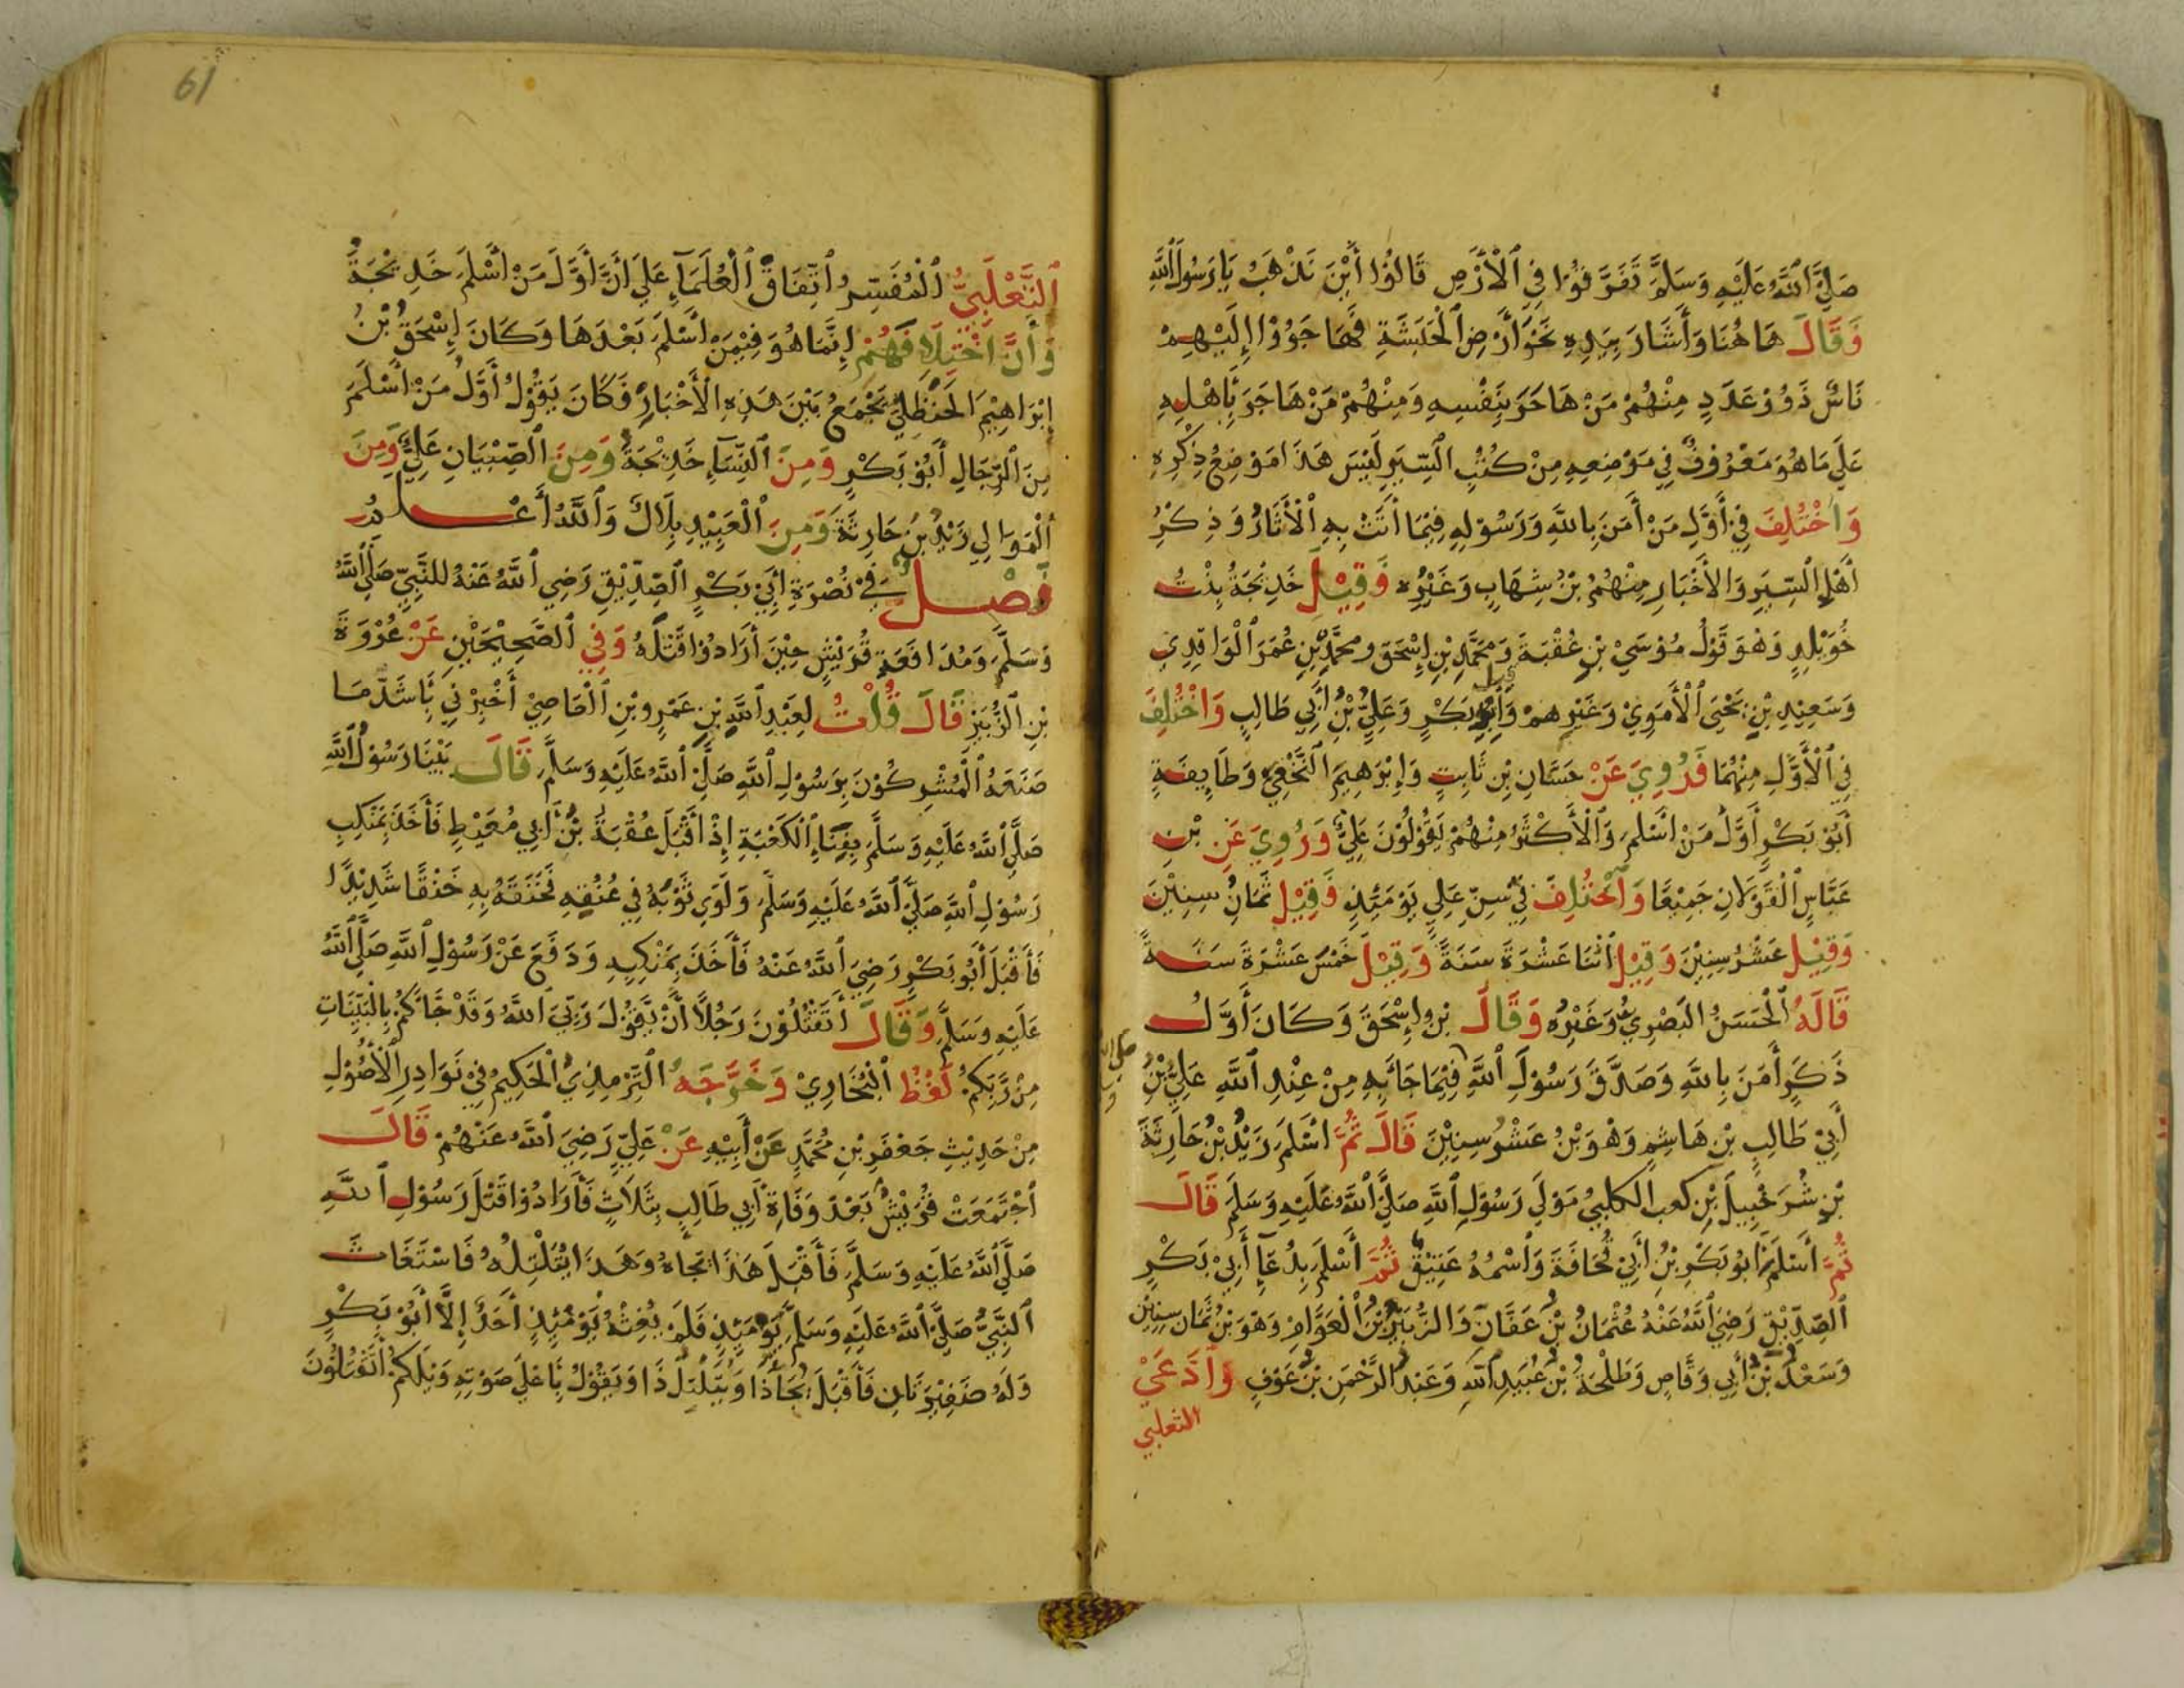 صَلَّى اللَّهُ عَلَيْهِ وَسَلَّمَ تَفَرَّقُوا فِي الْأَرْضِ قَالُوا أَيْنَ نَذْهَبُ يَا رَسُولَ اللَّهِ
فَقَالَ هَاهُنَا وَأَشَارَ بِيَدِهِ نَحْوَ أَرْضِ الْحَبَشَةِ فَهَاجَرُوْا إِلَيْهِمْ
نَاسٌ ذَوُوْ عَدَدٍ مِنْهُمْ مَنْ هَاجَرَ بِنَفْسِهِ وَمِنْهُمْ مَنْ هَاجَرَ بِأَهْلِهِ
عَلَى مَا هُوَ مَعْرُوفٌ فِي مَوْضِعِهِ مِنْ كُتُبِ السِّيَرِ لَيْسَ هَذَا مَوْضِعُ ذِكْرِهِ
وَاخْتُلِفَ فِي أَوَّلِ مَنْ أَمَنَ بِاللَّهِ وَرَسُوْلِهِ فِيْمَا أَتَتْ بِهِ الْأَثَارُ وَذِكْرُ
أَهْلِ السِّيَرِ وَالأَخْبَارِ مِنْهُمُ بْنُ شِهَابٍ وَغَيْرُه فَقِيْلَ خَدِيْجَةُ بِنْتُ
خُوَيْلِدٍ وَهُوَ قَوْلُ مُوْسَى بْنِ عُقْبَةَ وَمُحَمَّدِ بْنِ إِسْحَقَ ومُحَمَّدِ بْنِ عُمَرَ الْوَاقِدِي
وَسَعِيْدِ بْنِ يَحْيَى الْأَمَوِيْ وَغَيْرِهِمْ وَقيل أَبُو بَكْرٍ وَعَلِيُّ بْنُ أَبِي طَالِبٍ وَاخْتُلِفَ
فِي الْأَوَّلِ مِنْهُمَا فَرُوِيَ عَنْ حَسَّانِ بْنِ ثَابِتٍ وَإِبْرَهِيمَ النَّخْعِيّ وَطَايِفَةٍ
أَبُوْ بَكْرٍ أَوَّلُ مَنْ أَسْلَمَ وَالْأَكْثَرُ مِنْهُمْ يَقُوْلُوْنَ عَلِيٌّ وَرُوِيَ عَنِ بْنِ
عَبَّاسٍ الْقَوْلَانِ جَمِيْعًا وَاخْتُلِفَ فِي سِنِّ عَلِي يَوْمَئِذٍ فَقِيْلَ ثَمَانُ سِنِيْنَ
وَقِيْلَ عَشْرُ سِنِيْنَ وَقِيْلَ اثْنَا عَشْرَةَ سَنَةً وَقِيْلَ خَمْسَ عَشْرَةَ سَنَةً
قَالَهُ الْحَسَنُ الْبَصْرِيُّ وَغَيْرُه وَقَالَ بْنِ إِسْحَقَ وَكَانَ أَوَّلُ
ذَكَرٍ أَمَنَ بِاللَّهِ وَصَدَّقَ رَسُوْلَ اللَّهِ فِيْمَا جَائَ بِهِ مِنْ عِنْدِ اللَّهِ عَلِيُّ بْنُ
أَبِيْ طَالِبِ بْنِ هَاشِمٍ وَهْوَ بْنُ عَشْرُ سِنِيْنَ قَالَ ثُمَّ اسْلَمَ زَيْدُ بْنُ حَارِثَةَ
بْنِ شُرَحْبِيلَ بْنِ كعب الكلبيُ مَوْلَى رَسُوْلِ اللَّهِ صَلَّى اللَّهُ عَلَيْهِ وَسَلَّمَ قَالَ
ثُمَّ أَسْلَمَ أَبُو بَكْرِ بْنُ أَبِيْ قُحَافَةَ وَاسْمُهُ عَتِيْقٌ ثُمَّ أَسْلَمَ بِدُعَآءِ أَبِيْ بَكْرٍ
الصِّدِّيْقِ رَضِيَ اللَّهُ عَنْهُ عُثْمَانُ بْنُ عَفَّانَ وَالزُّبَيْرُ بْنُ الْعَوَّامِ وَهْوَ بْنُ ثَمَانِ سِنِيْنَ
وَسَعْدُ بْنُ أَبِي وَقَّاصٍ وَطَلْحَةُ بْنُ عُبَيْدِ اللَّهِ وَعَبْدُ الرَّحْمَنِ بْنُ عَوْفٍ وَادَّعَى
الثعلبي
الثَّعْلَبِيُّ الْمُفَسِّرُ اتِّفَاقُ الْعُلَمَآءِ عَلَى أَنَّ أَوَّلَ مَنْ أَسْلَمَ خَدِيْجَةُ
وَأَنَّ اخْتِلَافَهُمْ إِنَّمَا هُوَ فِيْمَنْ أَسْلَمَ بَعْدَهَا وَكَانَ إِسْحَقُ بْنُ
إِبْرَاهِيْمَ الْحَنْظَلِيُّ يَجْمَعُ بَيْنَ هَذِهِ الْأَخْبَارِ فَكَانَ يَقُوْلُ أَوَّلُ مَنْ أَسْلَمَ
مِنَ الرِّجَالِ أَبُوْ بَكْرٍ وَمِنَ النِّسَآءِ خَدِيْجَةُ وَمِنَ الصِّبْيَانِ عَلِيٌّ وَمِنَ
الْمَوَالِي زَيْدُ بْنُ حَارِثَةَ وَمِنَ الْعَبِيْدِ بِلَالٌ وَاللَّهُ أَعْلَمُ
فَصْلٌ فِيْ نُصْرَةِ أَبِيْ بَكْرٍ الصِّدِّيْقِ رَضِيَ اللَّهُ عَنْهُ للنَّبِيِّ صَلَّى اللَّهُ
وَسَلَّمَ وَمُدَافَعَةِ قُرَيْشٍ حِيْنَ أَرَادُوْا قَتْلَهُ وَفِي الصَّحِيْحَيْنِ عَنْ عُرْوَةَ
بْنِ الزُّبَيْرِ قَالَ قُلْتُ لِعَبْدِ اللَّهِ بْنِ عَمْرِو بْنِ الْعَاصِيْ أَخْبِرْنِيْ بِأَشَدِّ مَا
صَنَعَهُ الْمُشْرِكُوْنَ بِرَسُوْلِ اللَّهِ صَلَّى اللَّهُ عَلَيْهِ وَسَلَّمَ قَالَ بَيْنَا رَسُوْلُ اللَّهِ
صَلَّى اللَّهُ عَلَيْهِ وَسَلَّمَ بِفِنَاءِ الْكَعْبَةِ إِذْ أَقْبَلَ عُقْبَةُ بْنُ أَبِي مُعَيْطٍ فَأَخَذَ بِمَنْكِبِ
رَسُوْلِ اللَّهِ صَلَّى اللَّهُ عَلَيْهِ وَسَلَّمَ وَلَوَى ثَوْبَهُ فِي عُنُقِهِ فَخَنَقَهُ بِهِ خَنْقًا شَدِيْدًا
فَأَقْبَلَ أَبُو بَكْرٍ رَضِيَ اللَّهُ عَنْهُ فَأَخَذَ بِمَنْكِبِهِ وَدَفَعَ عَنْ رَسُوْلِ اللَّهِ صَلَّى اللَّهُ
عَلَيْهِ وَسَلَّمَ وَقَالَ أَتَقْتُلُوْنَ رَجُلًا أَنْ يَقُوْلَ رَبِّيَ اللَّهُ وَقَدْ جَائَكُمْ بِالْبَيِّنَاتِ
مِنْ رَّبِّكُمْ لَفْظُ الْبُخَارِيْ وَخَرَّجَهُ التِّرْمِذِيُّ الْحَكِيْمُ فِيْ نَوَادِرِ الْأُصُوْلِ
مِنْ حَدِيْثِ جَعْفَرِ بْنِ مُحَمَّدٍ عَنْ أَبِيْهِ عَنْ عَلِيٍّ رَضِيَ اللَّهُ عَنْهُمْ قَالَ
اجْتَمَعَتْ قُرَيْشٌ بَعْدَ وَفَاةِ أَبِي طَالِبٍ بِثَلَاثٍ فَأَرَادُوْا قَتْلَ رَسُوْلِ اللَّهِ
صَلَّى اللَّهُ عَلَيْهِ وَسَلَّمَ فَأَقْبَلَ هَذَا يَجَأُهُ وَهَذَا يُتَلْتِلُهُ فَاسْتَغَاثَ
النَّبِيُّ صَلَّى اللَّهُ عَلَيْهِ وَسَلَّمَ يَوْمَئِذٍ فَلَمْ يُغِثْهُ يَوْمَئِذٍ أَحَدٌ إِلَّا أَبُوْ بَكْرٍ
وَلَهُ ضَفِيْرَتَانِ فَأَقْبَلَ يَجَأُ ذَا وَيُتَلْتِلُ ذَا وَيَقُوْلُ بِأَعْلَى صَوْتِهِ وَيْلَكُمْ أَتَقْتُلُوْنَ
61